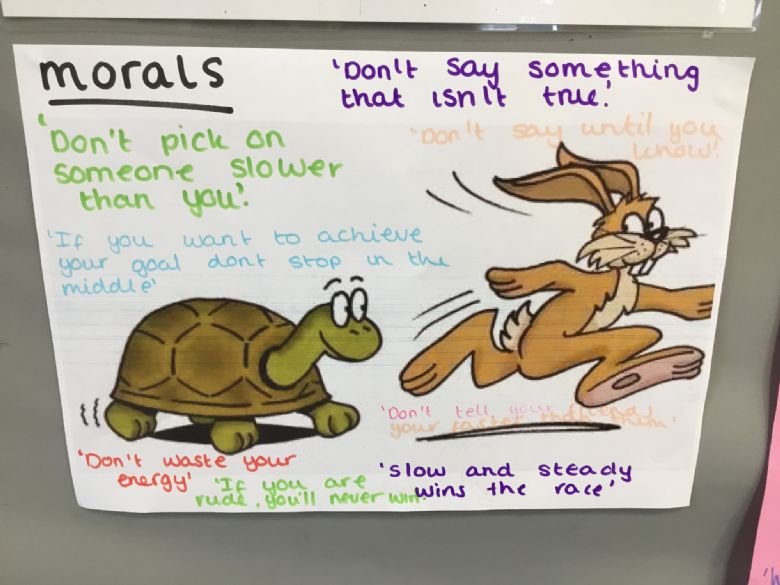 morals
'Don't say something
that isn't true.'
'Don't pick on
someone slower
than you'.
'Don't say until you
know!'
'If you want to achieve
your goal dont stop in the
middle'
'Don't tell your friend
your faster than them'
'Don't waste your
energy'
'If you are
rude, you'll never win.
'slow and steady
wins the race'